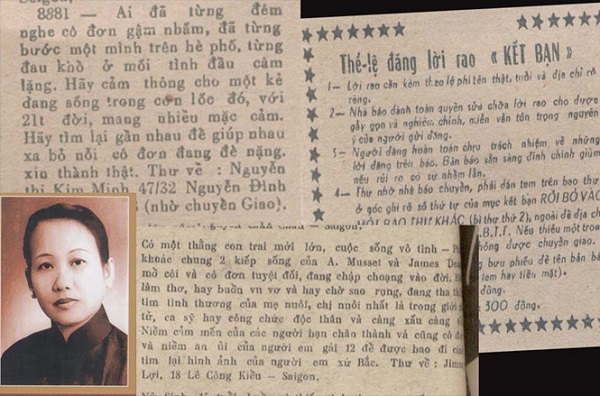 8881 — Ai đã từng đêm
nghe cô đơn gậm nhấm, đã từng
bước một mình trên hè phố, từng
đau khổ ở mối tình đầu câm
lặng. Hãy cảm thông cho một kẻ
đang sống trong cơn lốc đó, với
21t đời, mang nhiều mặc cảm.
Hãy tìm lại gần nhau để giúp nhau
xa bỏ nỗi cô đơn đang đè nặng,
xin thành thật. Thư về : Nguyễn
thị Kim Minh 47/32 Nguyễn Đình
(nhờ chuyển Giao).
Thể-lệ đăng lời rao «KẾT BẠN»
1— Lời rao cần kèm theo lệ phí tên thật, tuổi và địa chỉ rõ
ràng.
2— Nhà báo dành toàn quyền sửa chữa lời rao cho được
gẫy gọn và nghiêm chỉnh, miễn vẫn tôn trọng nguyên
ý của người gửi đăng.
3— Người đăng hoàn toàn chịu trách nhiệm về những
lời đăng trên báo. Bản báo sẵn sàng đính chính giùm
nếu rủi ro có sự nhầm lẫn.
4— Thư nhờ nhà báo chuyển, phải dán tem trên bao thư
ở góc ghi rõ số thứ tự của mục kết bạn RỒI BỎ VÀO
MỘT BAO THƯ KHÁC (bì thư thứ 2), ngoài đề địa ch
B.T.T. Nếu thiếu một tron
không được chuyển giao.
bưu phiếu đề tên bản bá
tem hay tiền mặt).
đồng.
300 đồng.
Saigon.
Có một thằng con trai mới lớn, cuộc sống vô tình — P
khoác chung 2 kiếp sống của A. Musset và James Dea
mồ côi và cô đơn tuyệt đối, đang chập choạng vào đời.
làm thơ, hay buồn vu vơ và hay chờ sao rụng, đang tha th
tìm tình thương của mẹ nuôi, chị nuôi nhất là trong giới
tử, ca sỹ hay công chức độc thân và càng xấu càng
Niềm cảm mến của các người bạn chân thành và cũng cô đ
và niềm an ủi của người em gái 12 để được bao đi ci
tìm lại hình ảnh của người em xứ Bắc. Thư về : Jimm
Lợi, 18 Lê Công Kiều — Saigon.